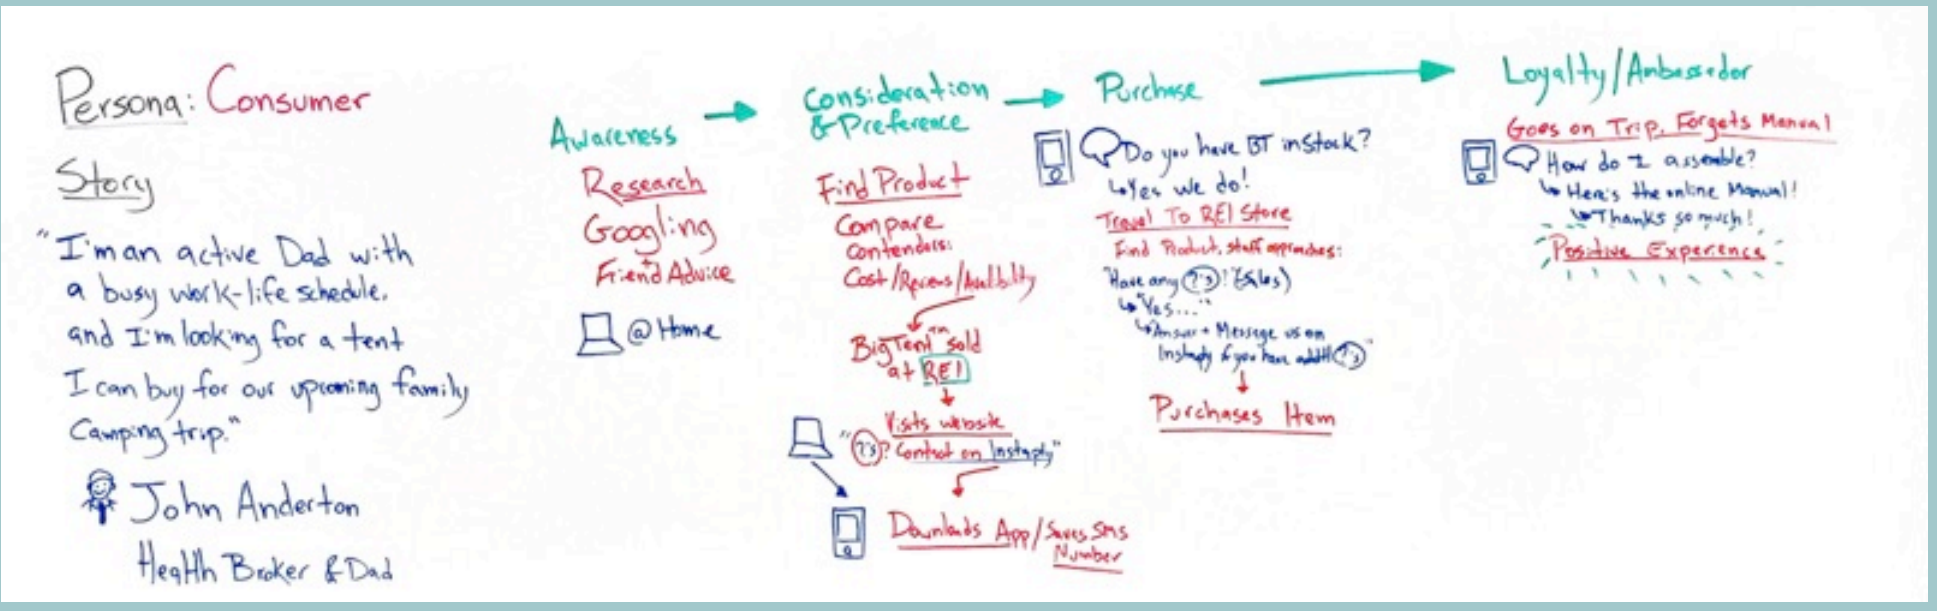 Persona: Consumer
Story
"I'm an active Dad with
a busy work-life schedule,
and I'm looking for a tent
I can buy for our upcoming family
Camping trip."
John Anderton
Health Broker & Dad
Awareness
Research
Googling
+
Friend Advice
@Home
Consideration
& Preference
Find Product
Compare
Contenders:
Cost/Reviews/Availblity
BigTent™ sold
at REI
Visits website
"?'s? Contact on Instaply"
Downloads App/Saves SMS
Number
Purchase
Do you have BT in Stock?
Yes we do!
Travel To REI Store
Find Product, staff approaches:
"Have any ?'s? (Sales)
"Yes..."
Answer + Message us on
Instaply if you have addtl ?'s"
Purchases Item
Loyalty/Ambassador
Goes on Trip, Forgets Manual
How do I assemble?
Here's the online Manual!
Thanks so much!
Positive Experience